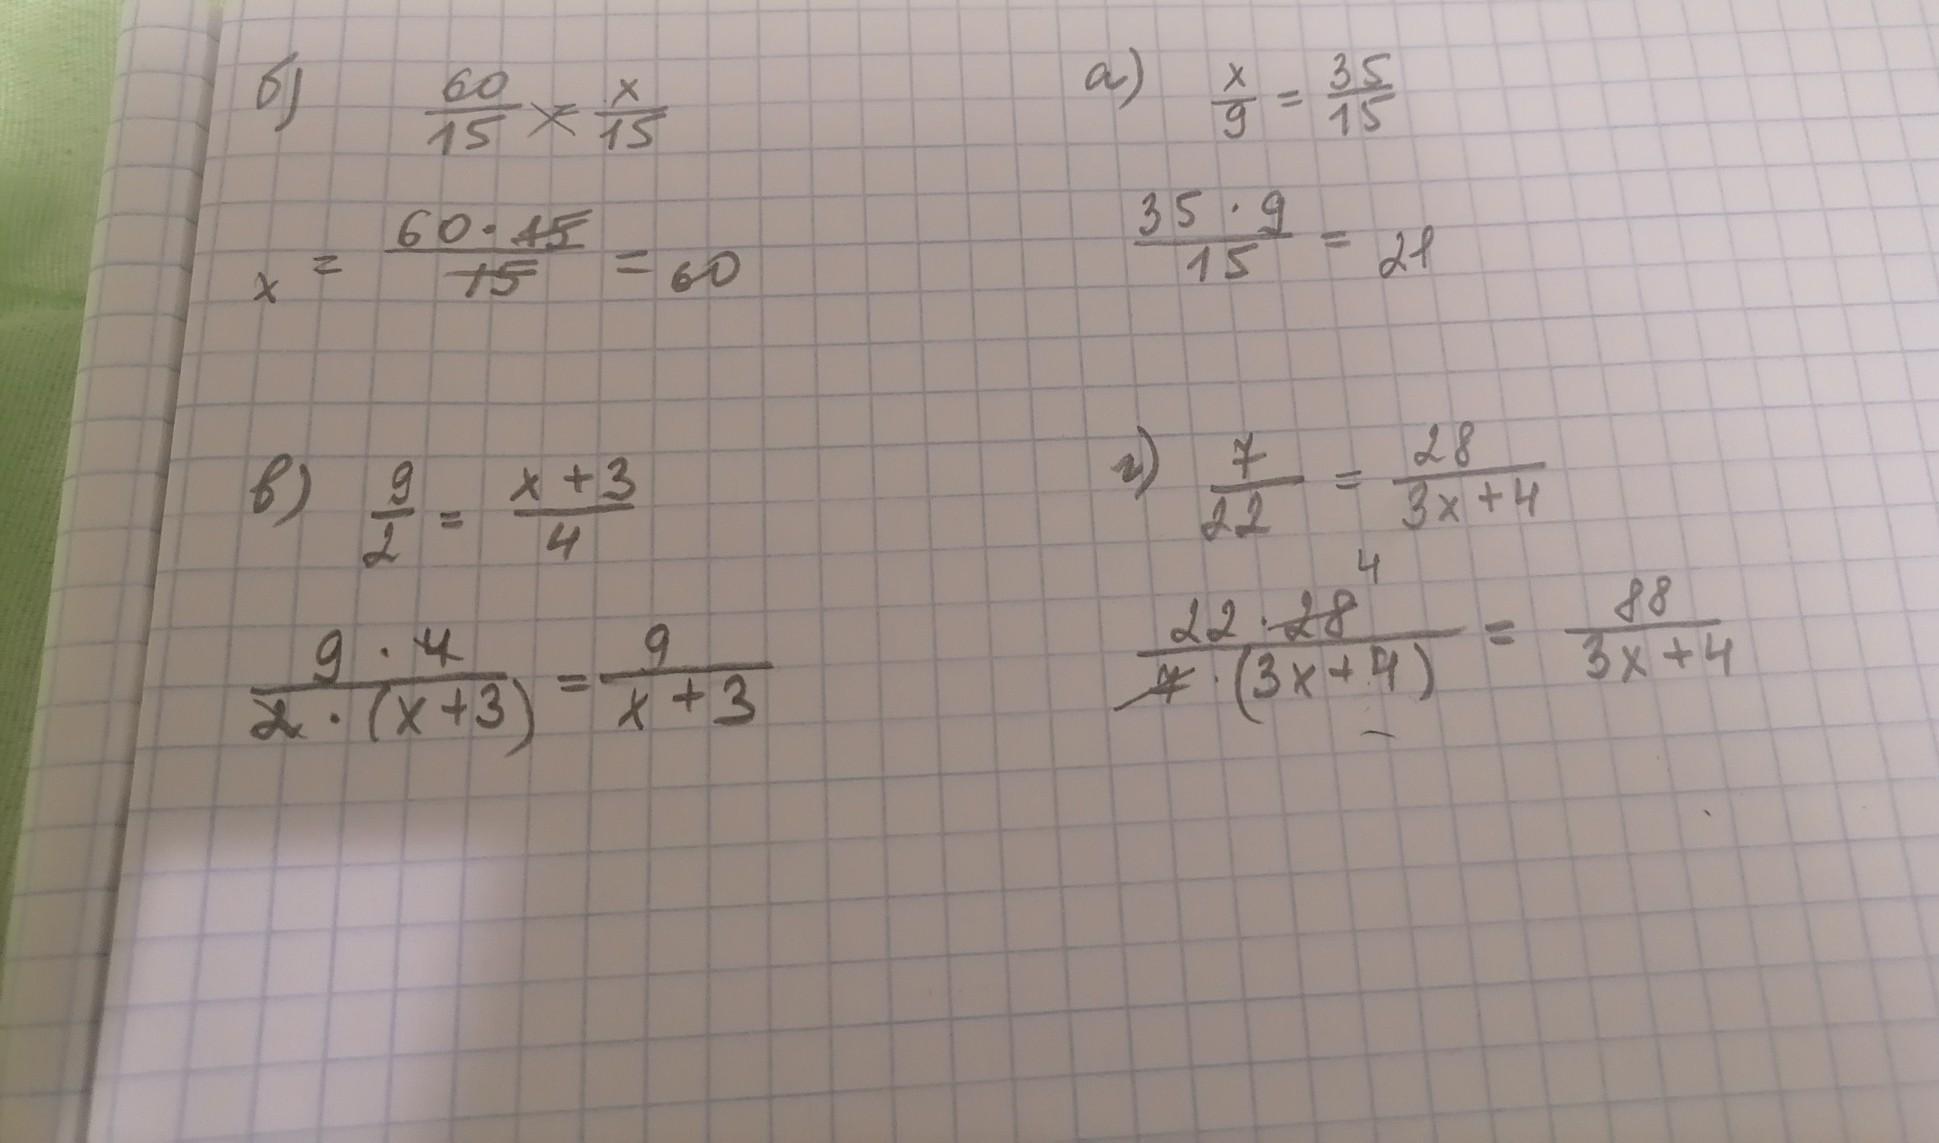 б) 60/15 = x/15
x = 60·15/15 = 60
а) x/9 = 35/15
35·9/15 = 21
в) 9/2 = x+3/4
9·4/2·(x+3) = 9/x+3
г) 7/22 = 28/3x+4
4
22·28/7·(3x+4) = 88/3x+4